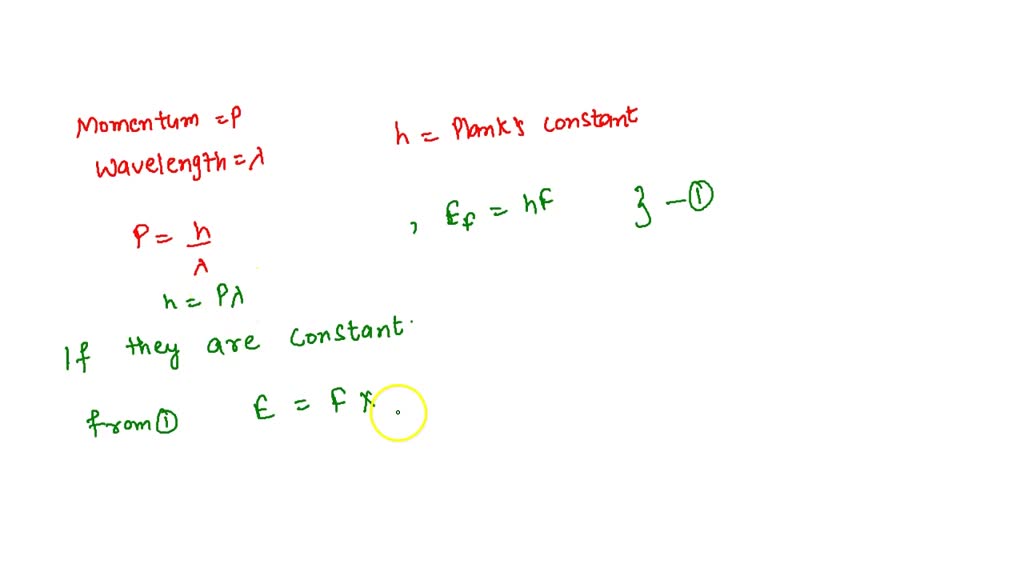 Momentum = P
Wavelength = λ
h = Plank's constant
P = h/λ
, Ef = hf } - ①
h = Pλ
If they are constant.
from ① E = F x